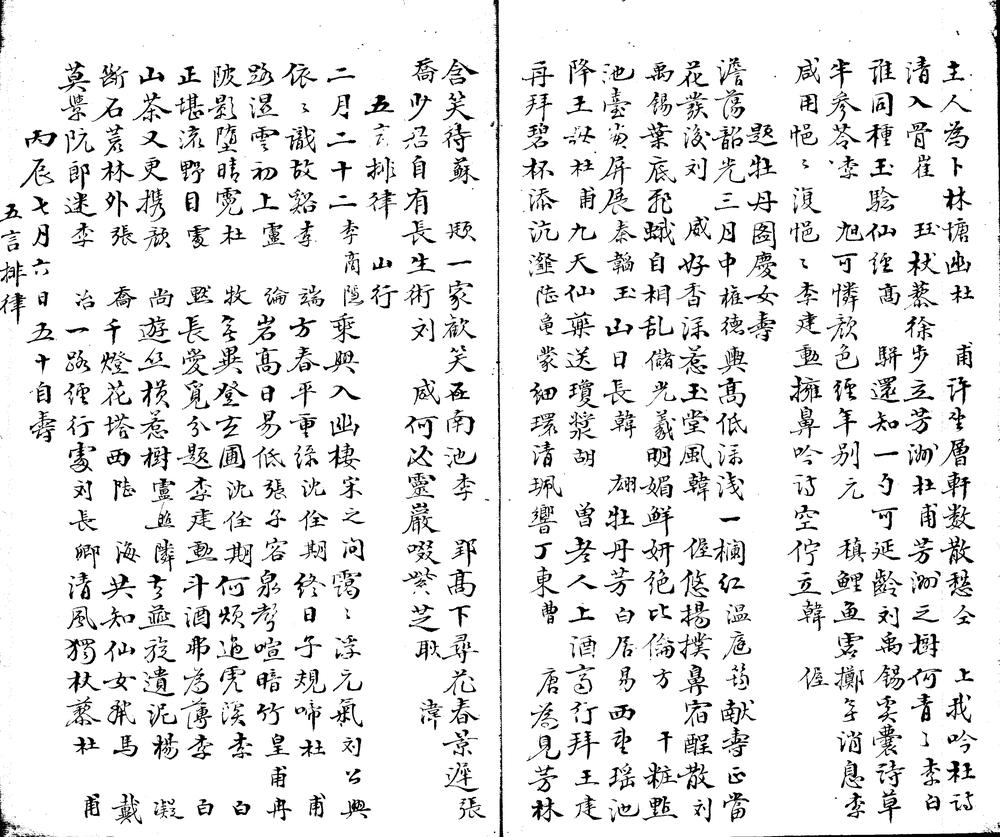 主人為卜林塘幽杜 甫許坐層軒数散愁仝 上我吟杜詩
清入骨崔 珏杖藜徐步立芳洲杜甫芳洲之樹何青〻李白
誰同種玉騐仙經高 駢還知一勺可延齡刘禹錫奚囊詩草
半參苓李 旭可憐顔色經年别元 稹鯉魚雲擲年消息李
咸用悒〻復悒〻李建勳擁鼻吟詩空佇立韓 偓
題牡丹图慶女壽
澹蕩韶光三月中權德輿高低深浅一欄红温庭筠献壽正當
花發後刘 咸好香深惹玉堂風韓 偓悠揚撲鼻宿酲散刘
禹錫葉底飛蛾自相乱儲光羲明媚鮮妍絶比倫方 干粧點
池臺畫屏展秦韜玉山日長韓 翃牡丹芳白居易西望瑶池
降王母杜甫九天仙藥送瓊漿胡 曽老人上酒高行拜王建
再拜碧杯添沆瀣陸龜蒙细環清珮響丁東曹 唐為見芳林
含笑待蘇 颋一家歓笑在南池李 郢高下尋花春景遲張
喬少君自有長生術刘 咸何必靈巖啜紫芝耿 湋
五言排律 山行
二月二十二李商隱乘興入幽棲宋之问靄〻浮元氣刘公興
依〻識故谿李 端方春平重綠沈佺期終日子規啼杜 甫
路濕雲初上盧 論岩高日易低張子容泉声喧暗竹皇甫冉
陂影墮晴霓杜 牧冬異登玄圃沈佺期何煩過虎溪李 白
正堪流野目處 黙長愛覓分題李建勳斗酒弗為薄李 白
山茶又更携顔 尚遊丝横惹樹盧照隣去燕旋遺泥楊 凝
斷石蒼林外張 喬千燈花塔西陸 海共知仙女驂馬 戴
莫學阮郎迷李 冶一路經行處刘長卿清風獨杖藜杜 甫
丙辰七月六日五十自壽
五言排律